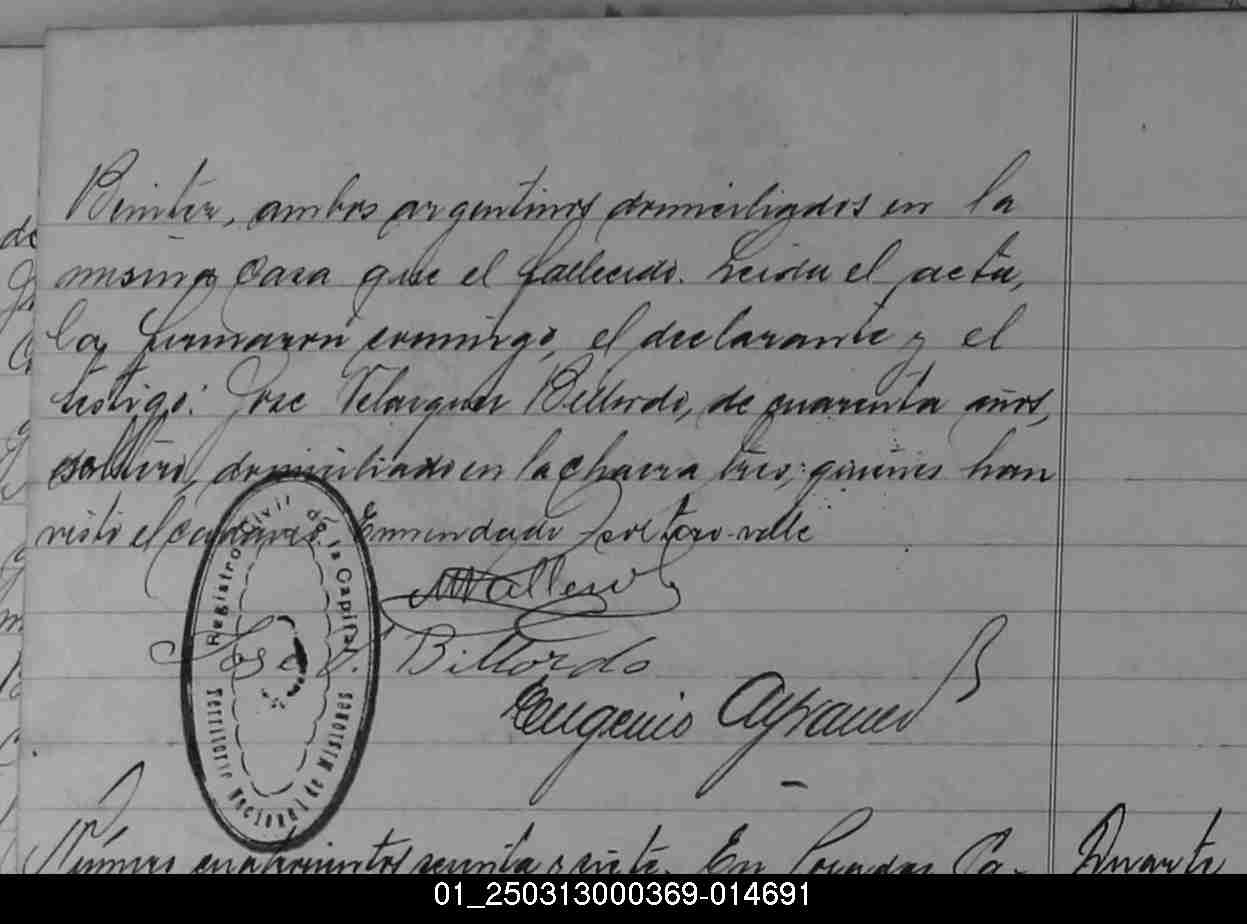 Benitez, ambos argentinos domiciliados en la
misma casa que el fallecido. Leida el acta,
la firmaron conmigo, el declarante y el
testigo: Jose Velazquez Billordo, de cuarenta años,
soltero, domiciliado en la chacra tres; quienes han
visto el cadaver. Enmendado soltero. valle
José V. Billordo
Eugenio
Registro Civil de la Capital.
Territorio Nacional de Misiones
Número cuatrocientos sesenta y siete. En Posadas Ca-
Duarte
de
01_250313000369-014691